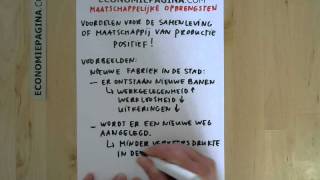 ECONOMIEPAGINA.COM
ECONOMIEPAGINA.COM
MAATSCHAPPELIJKE OPBRENGSTEN
VOORDELEN VOOR DE SAMENLEVING
OF MAATSCHAPPIJ VAN PRODUCTIE
POSITIEF!
VOORBEELDEN:
NIEUWE FABRIEK IN DE STAD:
- ER ONTSTAAN NIEUWE BANEN
↳ WERKGELEGENHEID ↑
WERKLOOSHEID ↓
UITKERINGEN ↓
- WORDT ER EEN NIEUWE WEG
AANGELEGD.
↳ MINDER VERKEERSDRUKTE
IN DE